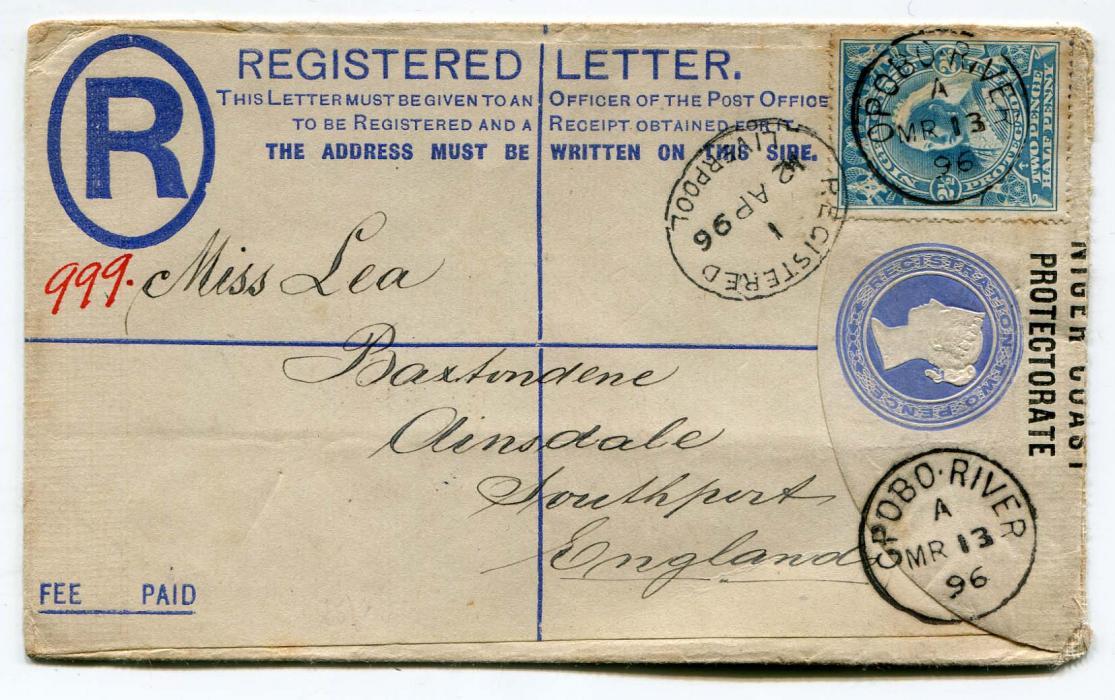 R
REGISTERED LETTER.
THIS LETTER MUST BE GIVEN TO AN OFFICER OF THE POST OFFICE
TO BE REGISTERED AND A RECEIPT OBTAINED FOR IT.
THE ADDRESS MUST BE WRITTEN ON THIS SIDE.
OPOBO·RIVER
A
MR 13
96
TWO PENCE
HALF PENNY
2½
REGISTERED
LIVERPOOL
1
2 AP 96
999.
Miss Lea
Baxtondene
Ainsdale
Southport
England
REGISTRATION TWO PENCE
NIGER COAST
PROTECTORATE
OPOBO·RIVER
A
MR 13
96
FEE PAID